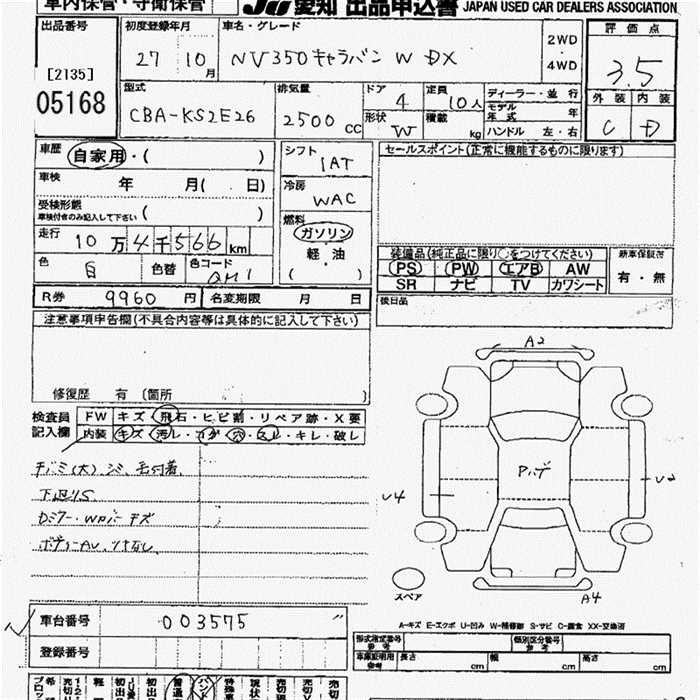 車内保管・守衛保管 JU 愛知 出品申込書 JAPAN USED CAR DEALERS ASSOCIATION
出品番号
[2135]
05168
初度登録年月
27 10月
車名・グレード
NV350キャラバン W DX
2WD
4WD
評価点
3.5
外装 内装
C D
型式
CBA-KS2E26
排気量
2500 cc
ドア
4
形状
W
定員
10人
積載 kg
ディーラー・並行
モデル年式 年
ハンドル 左・右
車歴
自家用・( )
車検
年 月( 日)
受検形態
車検付きのみ記入して下さい ( )
走行
10万4千566km
色
白
色替
色コード
QM1
シフト
1AT
冷房
WAC
燃料
ガソリン
・
軽油
・
( )
セールスポイント(正常に機能するものに限ります)
装備品(純正品に限り○をつけてください)
PS PW エアB AW
SR ナビ TV カワシート
新車保証書
有・無
後日品
R券 9960 円
名変期限 月 日
注意事項申告欄(不具合内容等は具体的に記入して下さい)
修復歴 有 〔箇所 〕
検査員記入欄
FW キズ・飛石・ヒビ割・リペア跡・X要
内装 キズ・汚レ・コゲ・穴・スレ・キレ・破レ
A2
U4
U2
A4
スペア
A-キズ E-エクボ U-凹み W-補修跡 S-サビ C-腐食 XX-交換済
車台番号 003575
登録番号
形式指定番号 参考
類別区分番号 参考
車庫証明用 参考 長さ cm 幅 cm 高さ cm